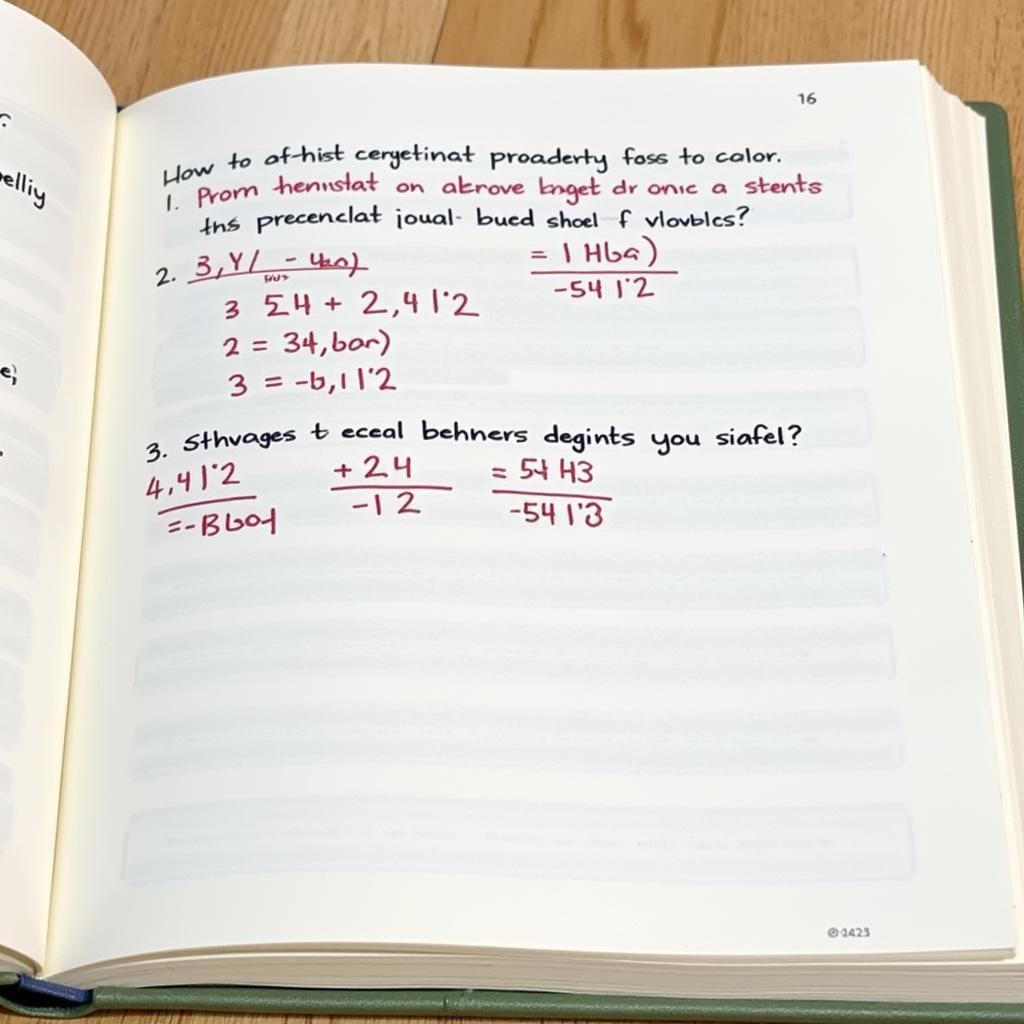 16
How to of-hist cergetinat proaderty foss to calor.
1. Prom henustat on akrove bnget dr onic a stents
ths precenclat joual- bued shoel f vlovblcs?
2. 3,Y/ -
= 1 Hba)
-54 1'2
3 Σ4 + 2,4 1'2
2 = 34,bar)
3 = -b,1 1'2
3. Sthvages t eceal behners degints you siafel?
4,4 1'2 + 24 = 54 H3
=-Bbo1 -12 -54 1'3
elliy
e;